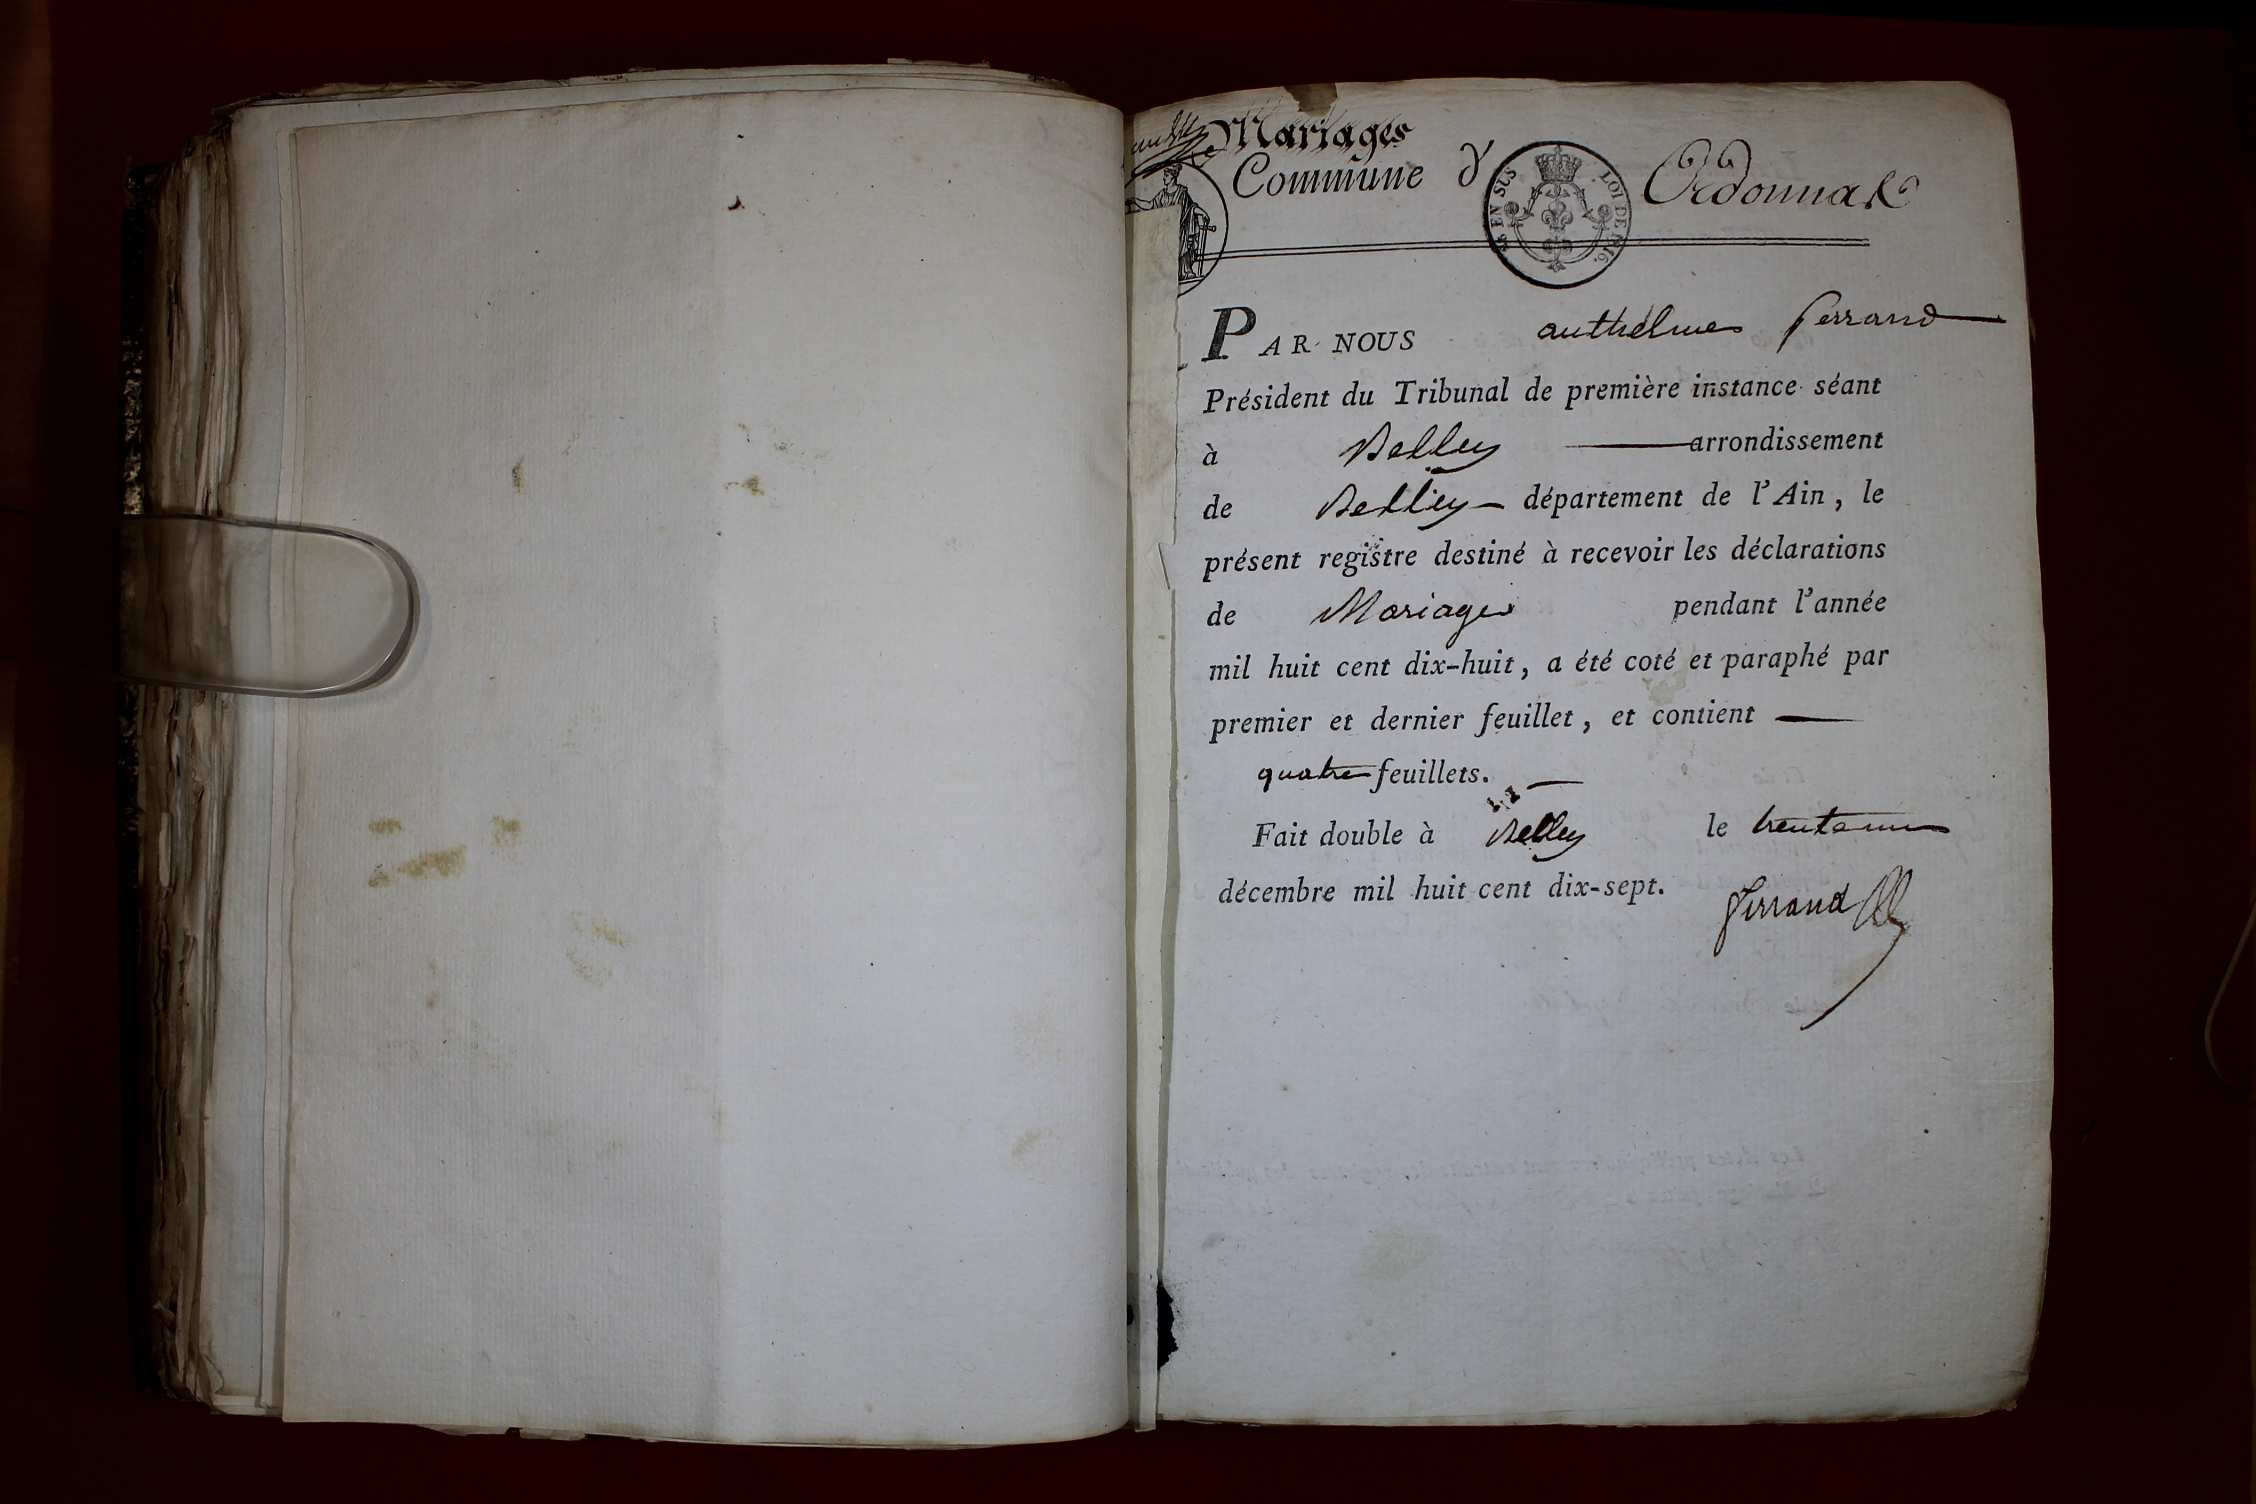 Mariages
Commune d' Ordonnaz
EN SUS LOI DE 1816.
PAR NOUS anthelme ferrand
Président du Tribunal de première instance séant
à Belley arrondissement
de Belley département de l'Ain, le
présent registre destiné à recevoir les déclarations
de Mariages pendant l'année
mil huit cent dix-huit, a été coté et paraphé par
premier et dernier feuillet, et contient
quatre feuillets.
Fait double à Belley le trente un
décembre mil huit cent dix-sept.
ferrand